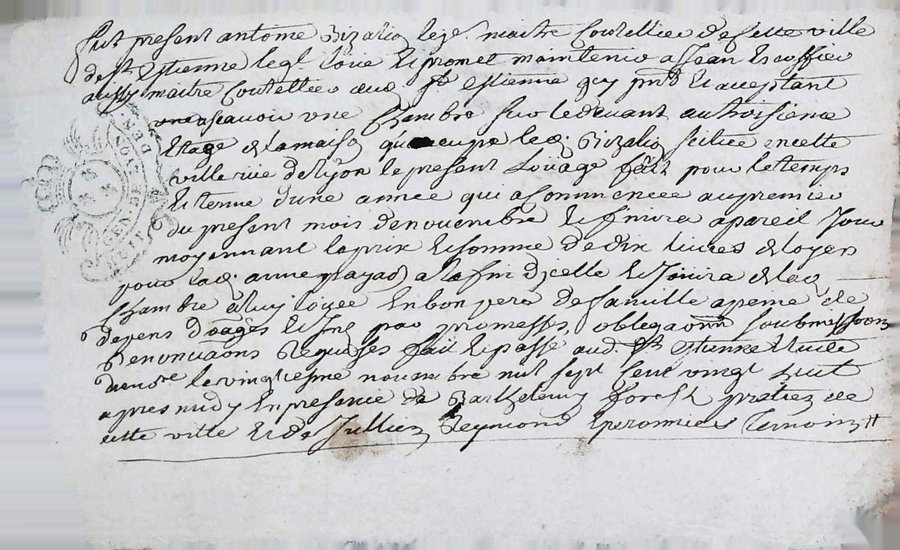 fut present antoine Brzalio leg. maitre Coutellier de cette ville
de St Estienne leql loue et promet maintenir a Jean Escoffier
aussy maitre Coutellier dud St estienne icy pnt et acceptant
ascavoir une Chambre sur le devant au troisieme
Etage de la maison qu'occupe led. scitue en cette
ville rue de lyon le present Louage fait pour le temps
et terme d'une annee qui a commencee au premier
du present mois de novembre et finira a pareil Jour
moyennant le prix et somme de dix livres de loyer
pour lad. annee payab a la fin d'jcelle et Jouira de lad
Chambre a luy louee En bon pere de famille a peine de
depens d'omages par promesses, obligaons soubmissions
Renonciaons Requises fait et passe aud. St Estienne
le vingtiesme novembre mil sept Cent vingt huit
apres midy En presence de Barthelemy Forest praticien de
cette ville et de Jullien Reymond Eperonnier Temoins
GEN DE LYON HUIT DEN